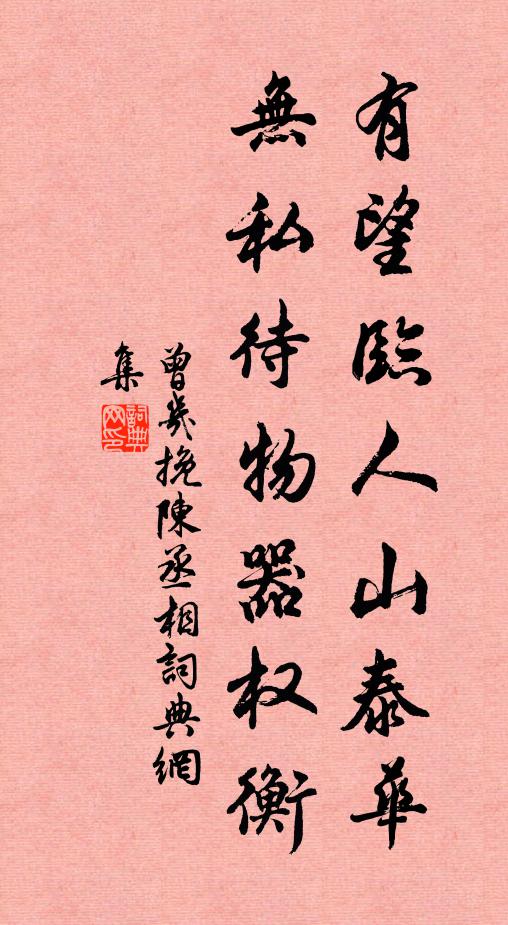 有望臨人山泰華
無私待物器权衡
曾幾挽陳丞相詞典網
集
詞典网印